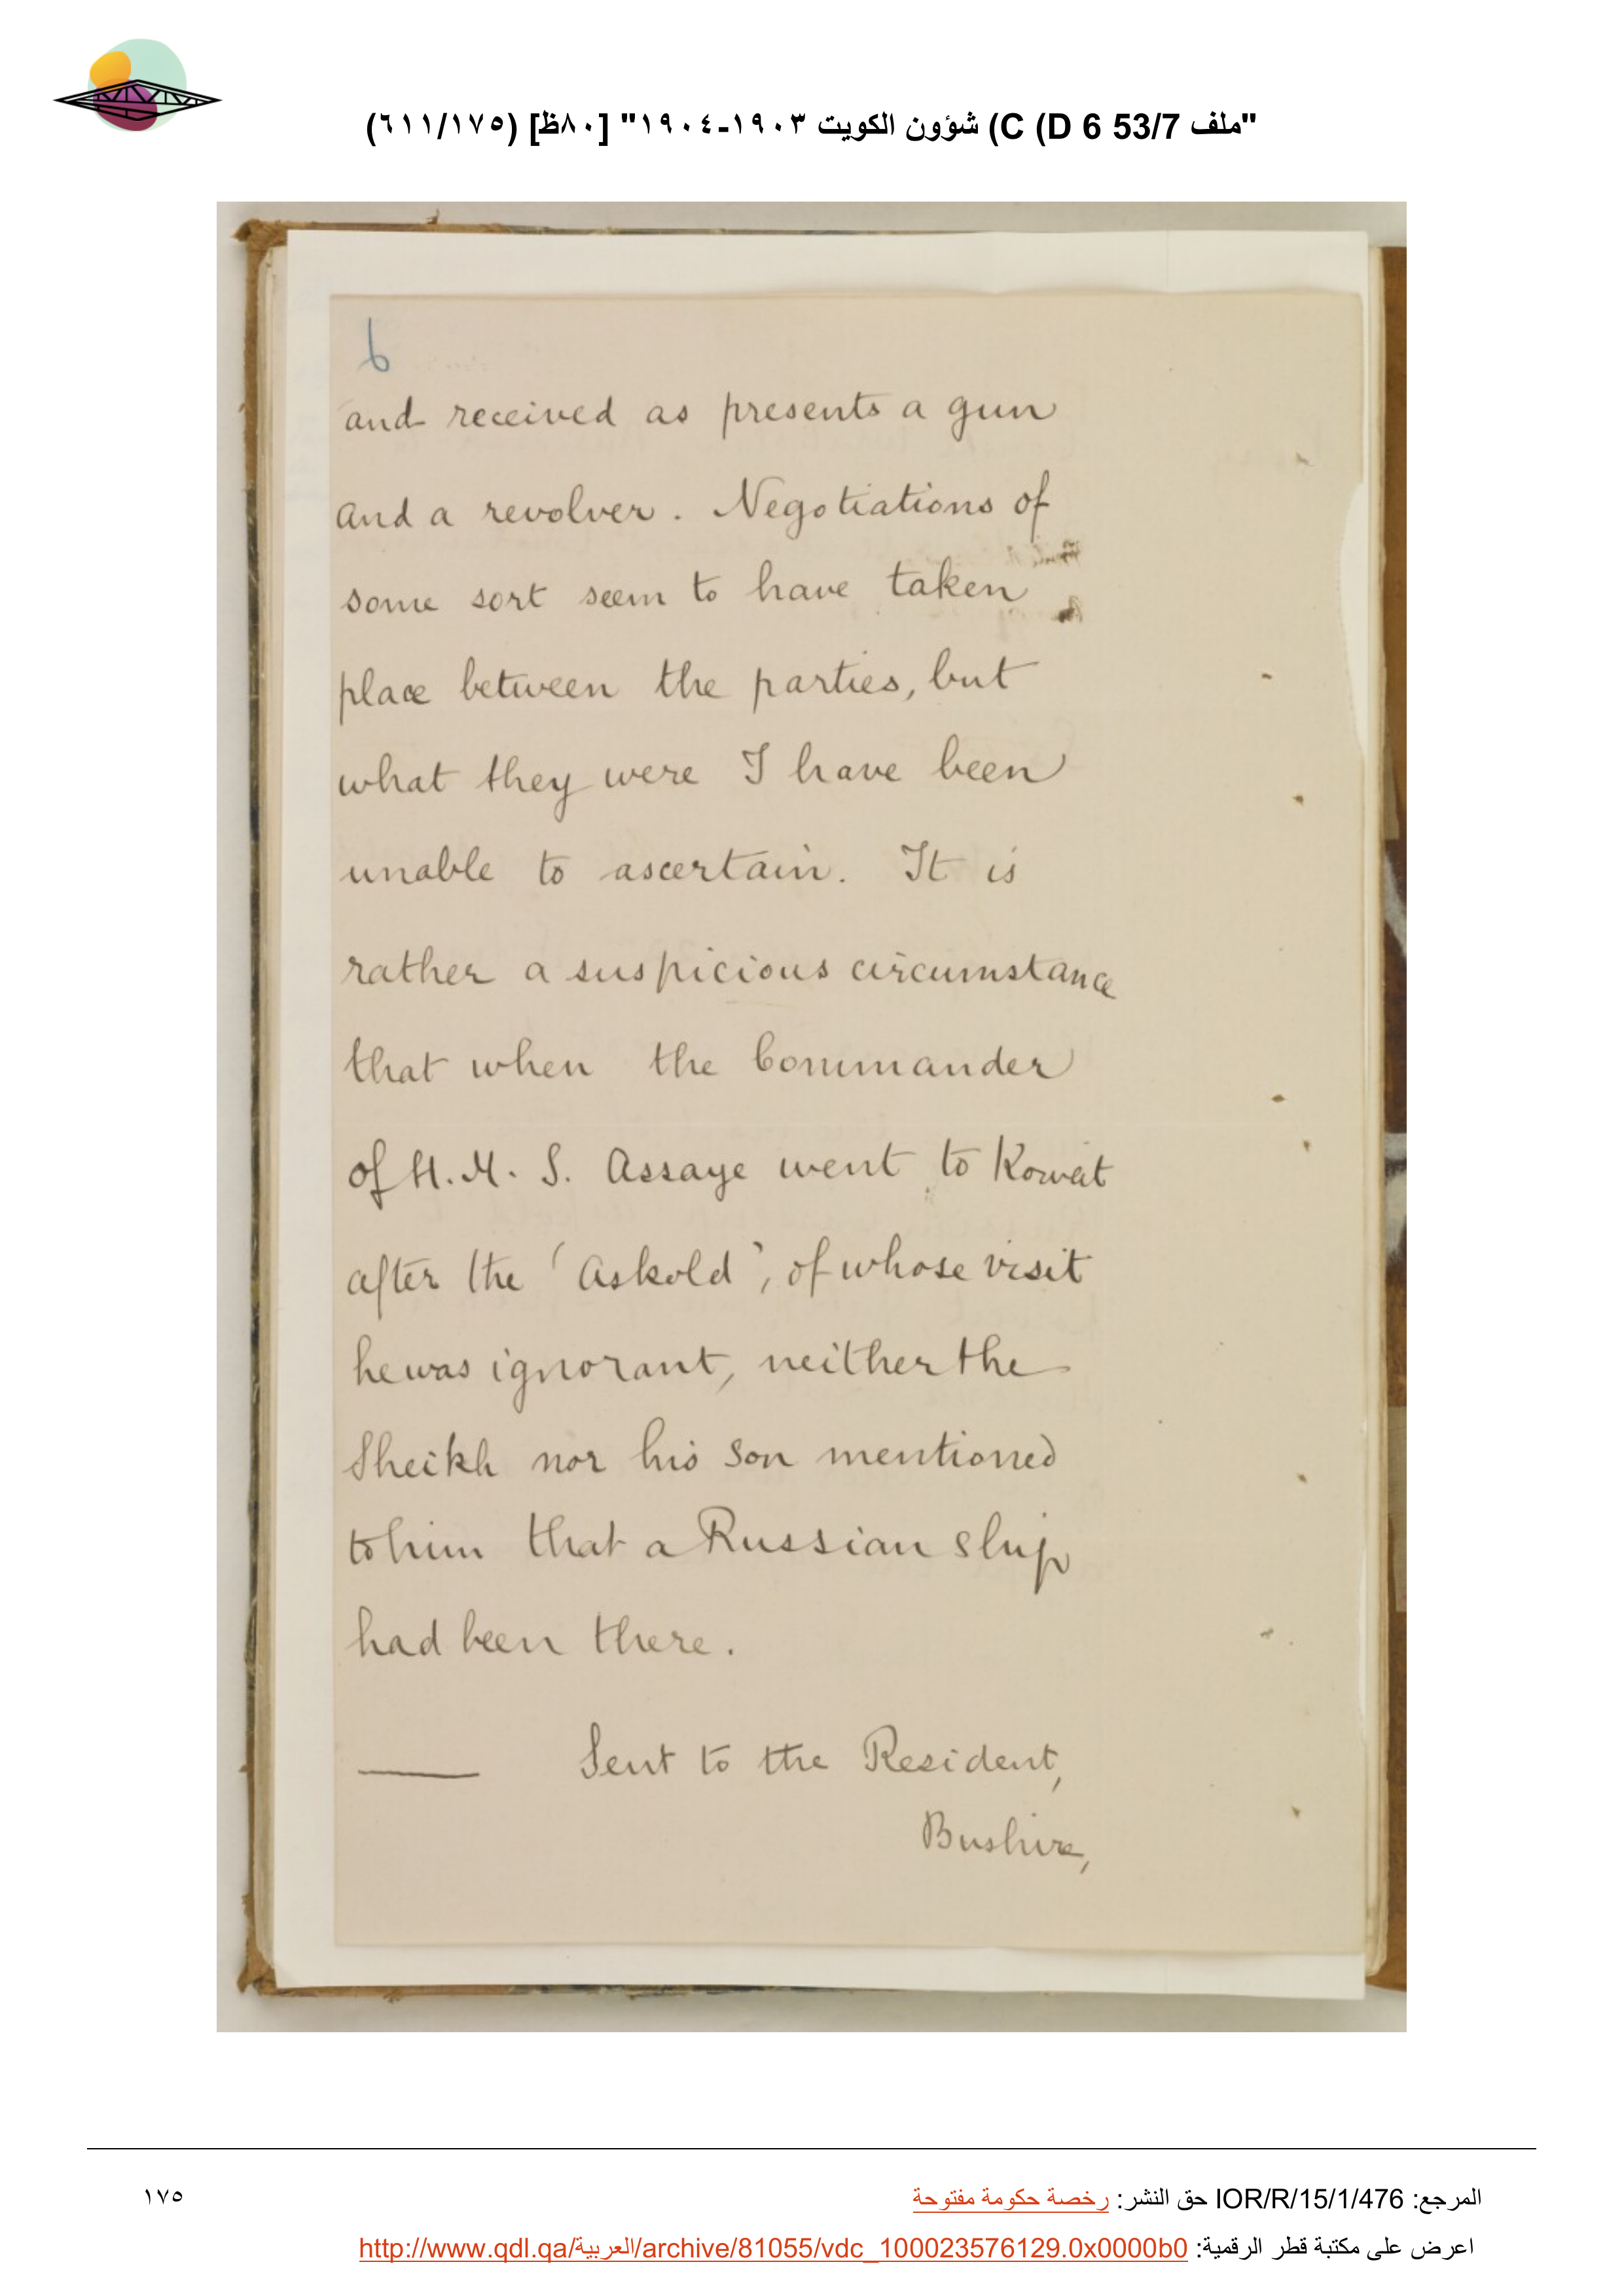 "ملف 53/7 D 6) C) شؤون الكويت ١٩٠٣-١٩٠٤" [٨٠ظ] (٦١١/١٧٥)
6
and received as presents a gun
and a revolver. Negotiations of
some sort seem to have taken
place between the parties, but
what they were I have been
unable to ascertain. It is
rather a suspicious circumstance
that when the Commander
of H.M.S. Assaye went to Koweit
after the 'Askold', of whose visit
he was ignorant, neither the
Sheikh nor his son mentioned
to him that a Russian ship
had been there.
Sent to the Resident,
Bushire,
المرجع: IOR/R/15/1/476 حق النشر: رخصة حكومة مفتوحة
١٧٥
اعرض على مكتبة قطر الرقمية: http://www.qdl.qa/العربية/archive/81055/vdc_100023576129.0x0000b0